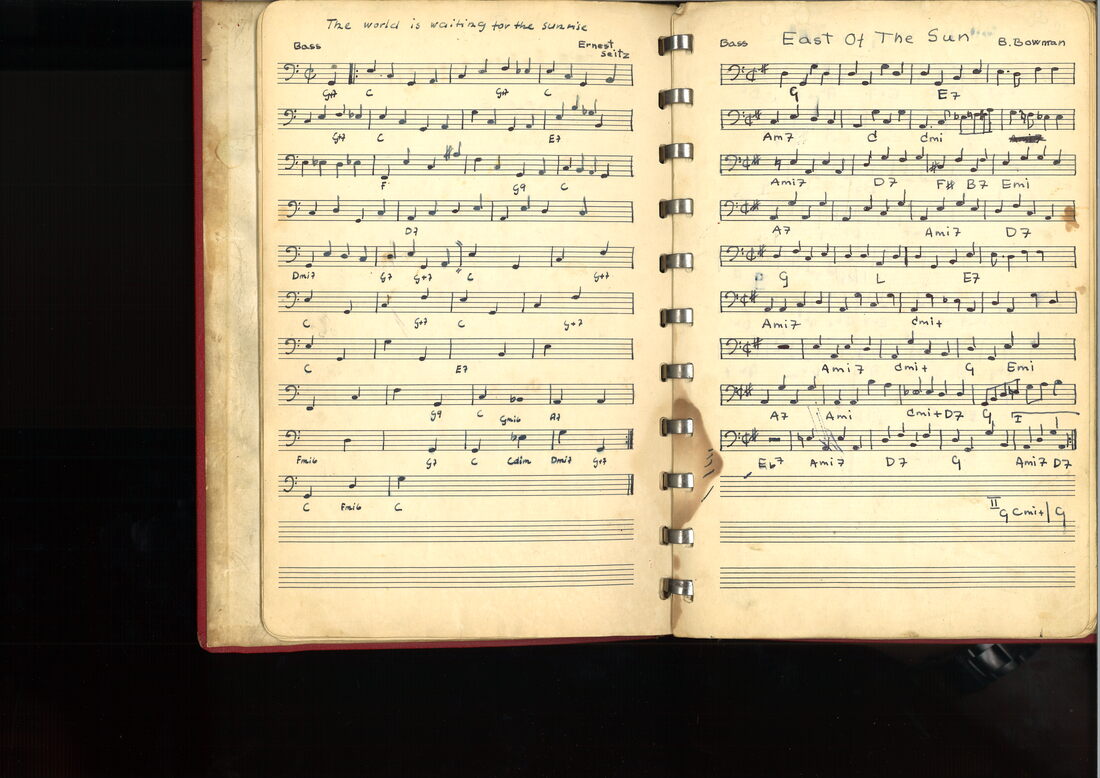 The world is waiting for the sunrise
Bass
Ernest
seitz
G+7 C G+7 C
G+7 C E7
F G9 C
D7
Dmi7 G7 G+7 C G+7
C G+7 C G+7
C E7
G9 C Gmi6 A7
Fmi6 G7 C Cdim Dmi7 G+7
C Fmi6 C
Bass
East Of The Sun
B. Bowman
G E7
Am7 C Cmi
Ami7 D7 F# B7 Emi
A7 Ami7 D7
G L E7
Ami7 Cmi+
Ami7 Cmi+ G Emi
A7 Ami Cmi+ D7 G I
Eb7 Ami7 D7 G Ami7 D7
II
G Cmi+ | G